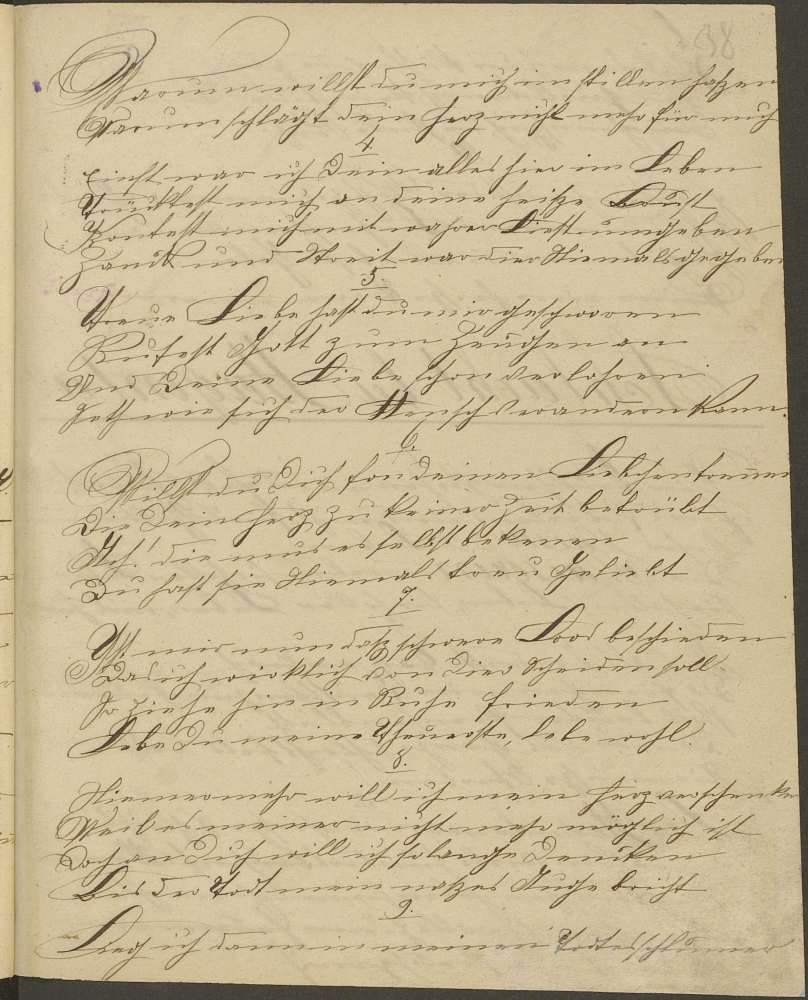 38
Warum willst du mich im stillen haßen
Warum schlägt dein Herz nicht mehr für mich
4.
Einst war ich Dein alles hier im Leben
Drücktest mich an deine heiße Brust
Kontest mich mit wahrer Liebe umgeben
Zank und Streit war dier Niemals gegeben
5.
Treue Liebe hast du mir geschworen
Rufest Gott zum Zeugen an
Und Deine Liebe schon verlohren
Seth wie sich der Mensch verandern kann.
6.
Willst du Dich fon deinem Liebchen trennen
Die Dein Herz zu keiner Zeit betrübt
Ach! die mus es selbst bekenen
Du hast sie Niemals treu Geliebt
7.
Ist mir nun daß schwere Loos beschieden
Das ich wirklich von Dier Scheiden soll
So Ziehe hin in Ruhe frieden
Lebe Du meine Theuerste, lebe wohl.
8.
Niemermehr will ich mein Herz verschenken
Weil es meiner nicht mehr möglich ist
Doch an Dich will ich solange Denken
Bis der Todt mein naßes Auge bricht
9.
Lieg ich dann in meinen Todtesschlummer